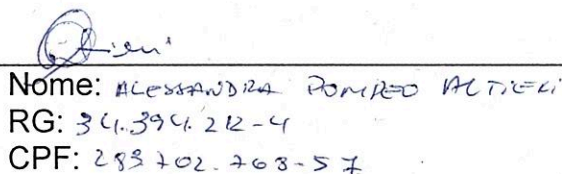 Nome: ALESSANDRA POMPEO ALTIERI
RG: 34.394.212-4
CPF: 283 702.768-57